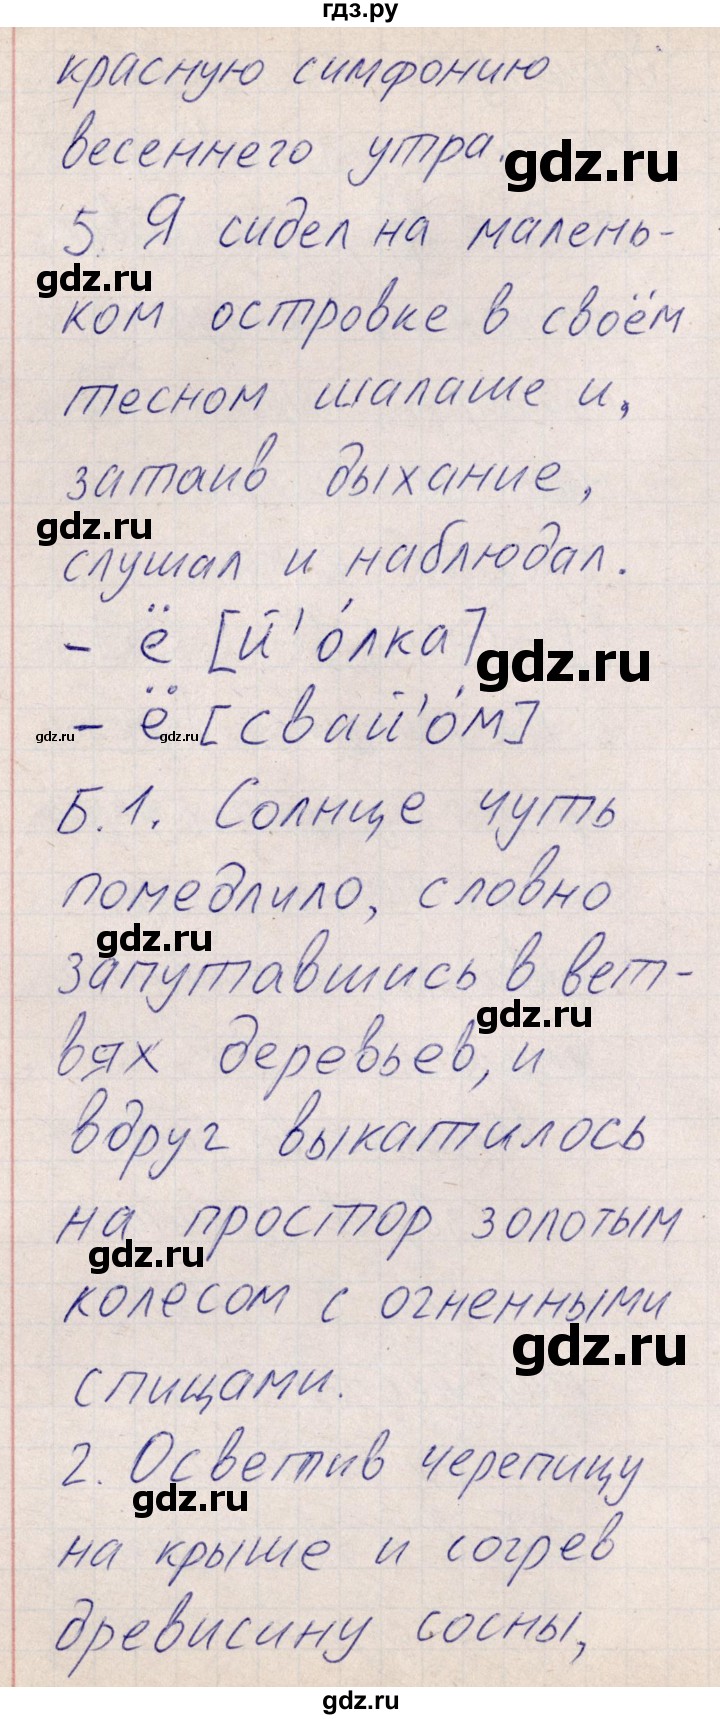 гдз.ру
красную симфонию
весеннего утра.
gdz.ru
5. Я сидел на малень-
gdz.ru
ком островке в своём
тесном шалаше и,
затаив дыхание,
gdz.ru
слушал и наблюдал.
- ё [й'о́лка]
gdz.ru
- ё [свай'о́м]
gdz.ru
gdz.ru
Б.1. Солнце чуть
помедлило, словно
gdz.ru
запутавшись в вет-
gdz.ru
вях деревьев, и
вдруг выкатилось
на простор золотым
gdz.ru
колесом с огненными
gdz.ru
спицами.
2. Осветив черепицу
gdz.ru
на крыше и согрев
древисину сосны,
gdz.ru